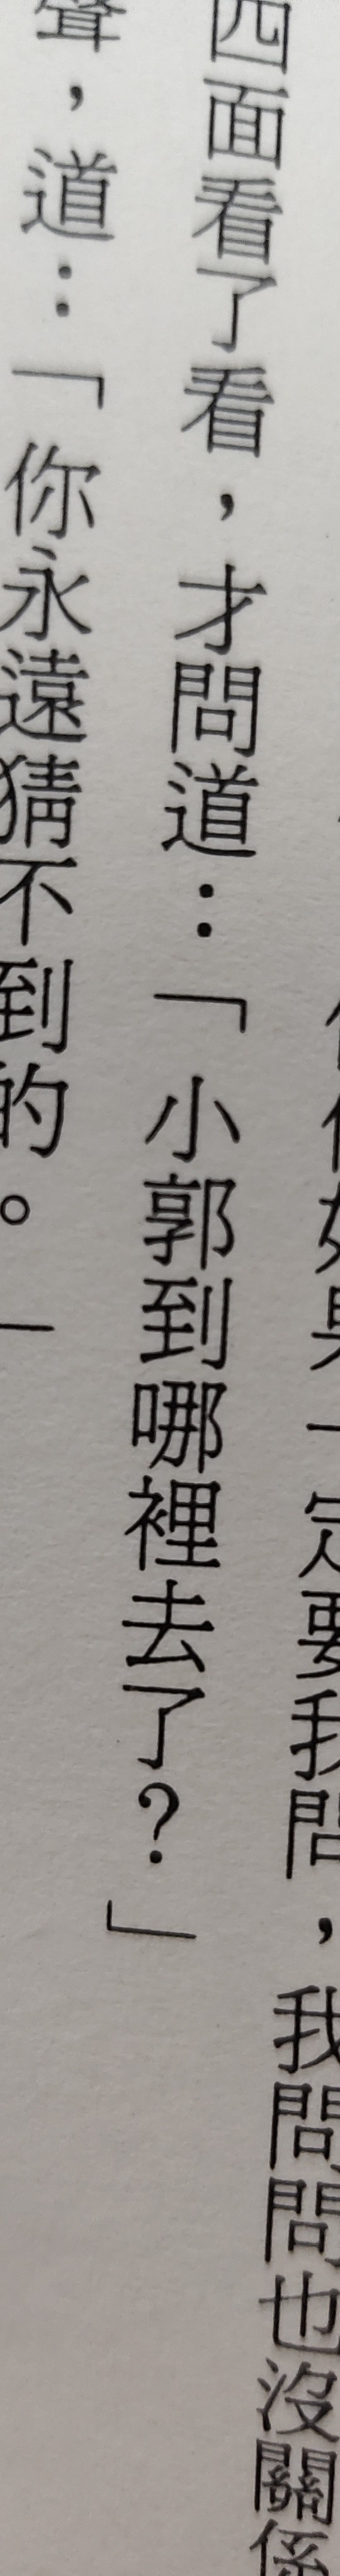 你如果一定要我問，我問問也沒關係
四面看了看，才問道：「小郭到哪裡去了？」
聲，道：「你永遠猜不到的。